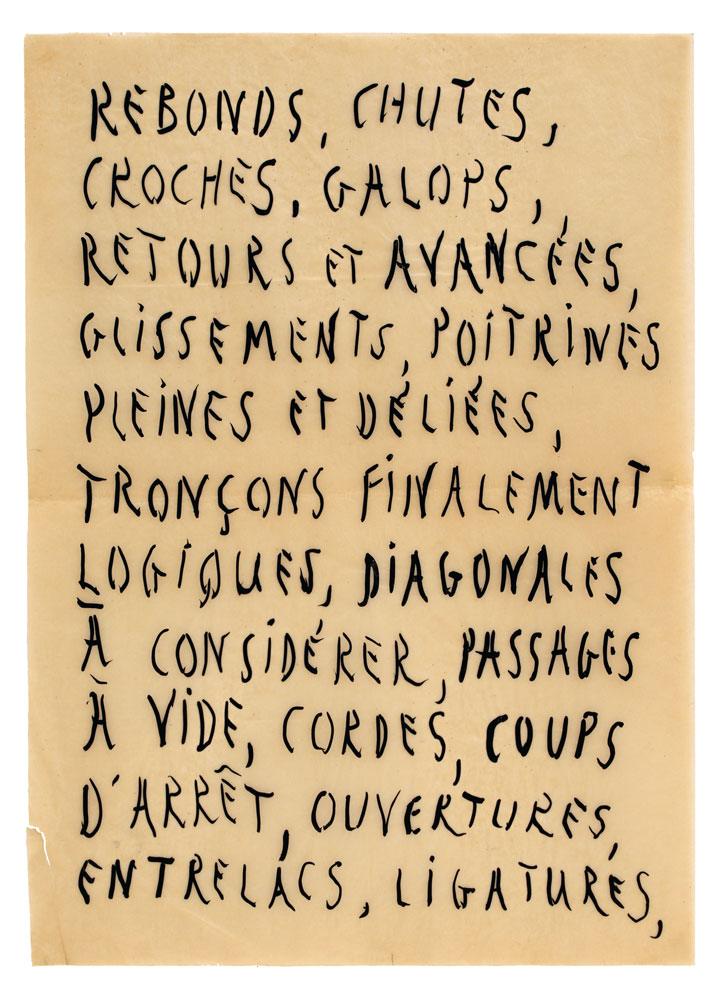 REBONDS, CHUTES,
CROCHES, GALOPS,
RETOURS ET AVANCÉES,
GLISSEMENTS, POITRINES
PLEINES ET DÉLIÉES,
TRONÇONS FINALEMENT
LOGIQUES, DIAGONALES
À CONSIDÉRER, PASSAGES
À VIDE, CORDES, COUPS
D'ARRÊT, OUVERTURES,
ENTRELACS, LIGATURES,